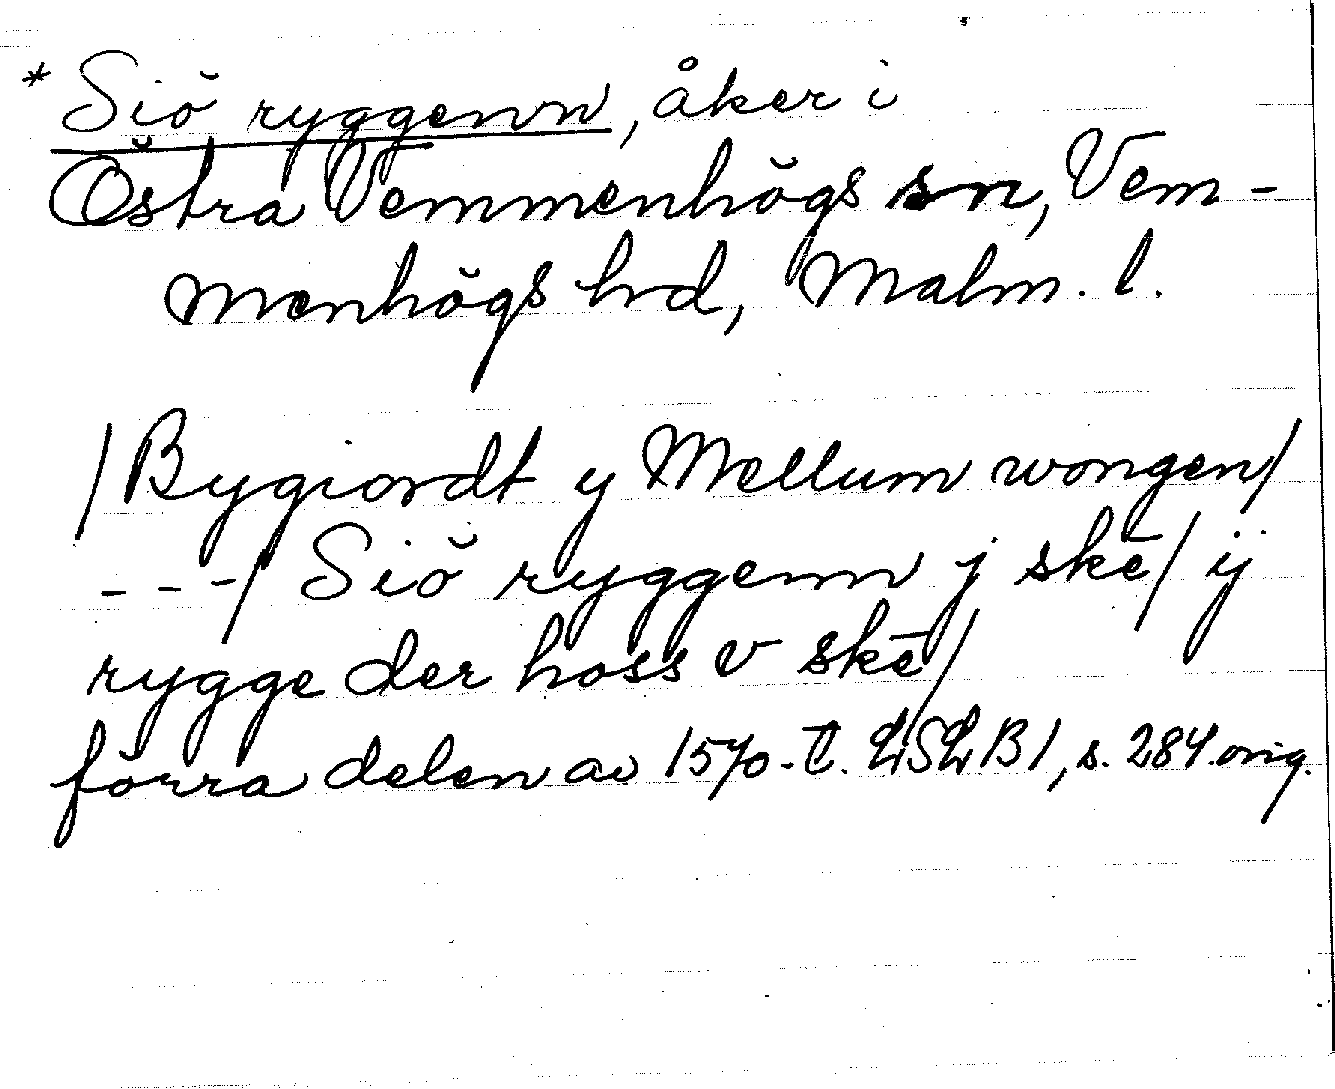 * Siö ryggenn, åker i
Östra Vemmenhögs sn, Vem-
menhögs hd, Malm. l.
/Bygiordt y Mellum wongen/
---/ Siö ryggenn j skē/ ij
rygge der hoss v skē/
förra delen av 1570-t. LSLB1, s. 284.orig.